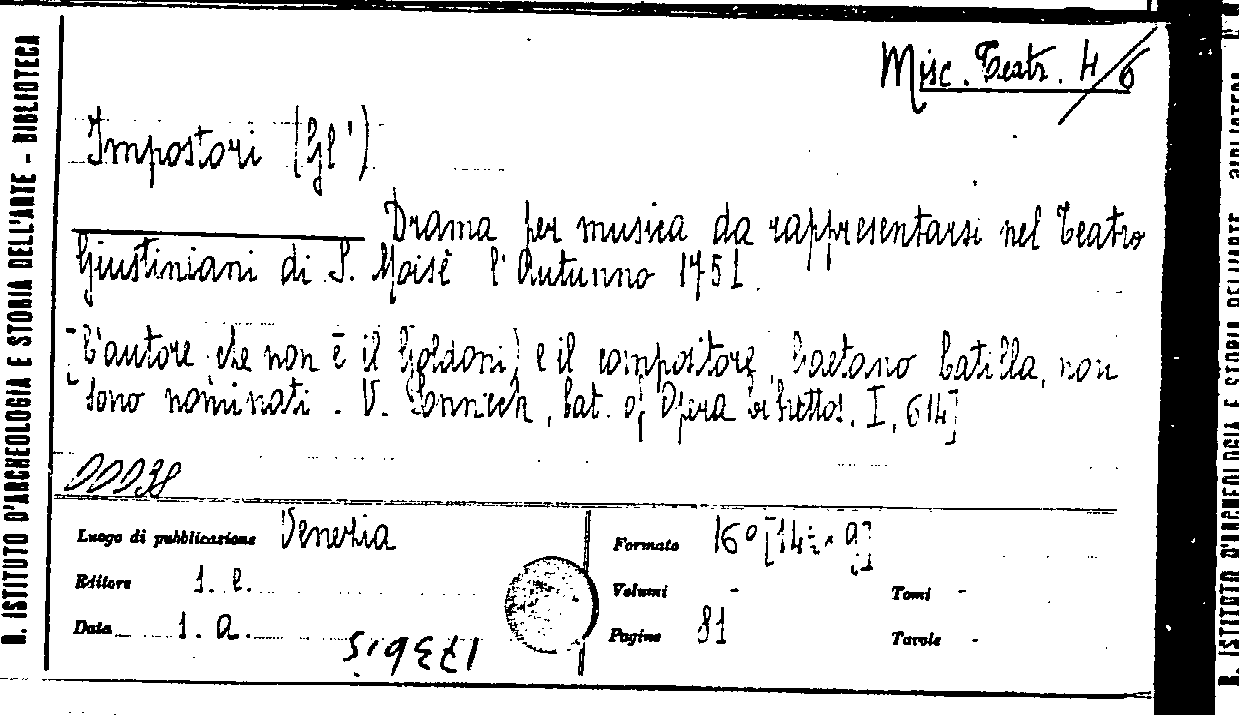 Misc. Teatr. 4/6
Impostori (Gl')
Drama per musica da rappresentarsi nel Teatro
Giustiniani di S. Moisè l'Autunno 1751.
[L'autore (che non è il Goldoni) e il compositore, Gaetano Latilla, non
sono nominati. V. Sonneck, Cat. of Opera Librettos, I, 614]
00038
Luogo di pubblicazione Venezia
Formato 16° [14½ × 9]
Editore s. e.
Volumi -
Tomi -
Data s. a.
Pagine 81
Tavole -
R. ISTITUTO D'ARCHEOLOGIA E STORIA DELL'ARTE - BIBLIOTECA